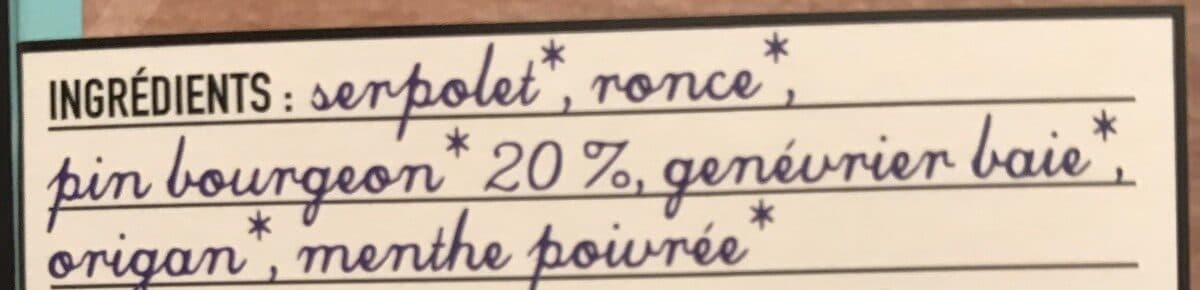 INGRÉDIENTS : serpolet*, ronce*,
pin bourgeon* 20 %, genévrier baie*,
origan*, menthe poivrée*